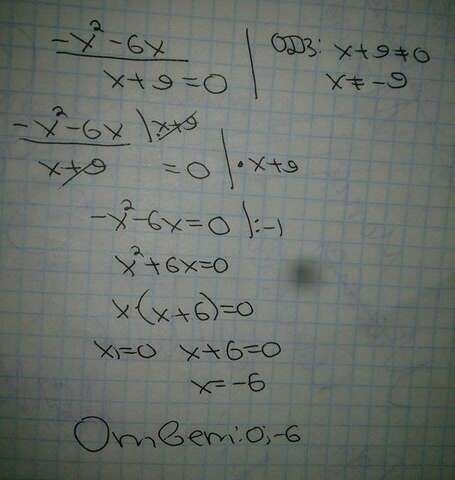 -x² - 6x
x + 9 = 0
ОДЗ: x + 9 ≠ 0
x ≠ -9
-x² - 6x \ x+9
x + 9 = 0 | · x+9
-x² - 6x = 0 | : -1
x² + 6x = 0
x · (x + 6) = 0
x₁ = 0 x + 6 = 0
x = -6
Ответ: 0; -6